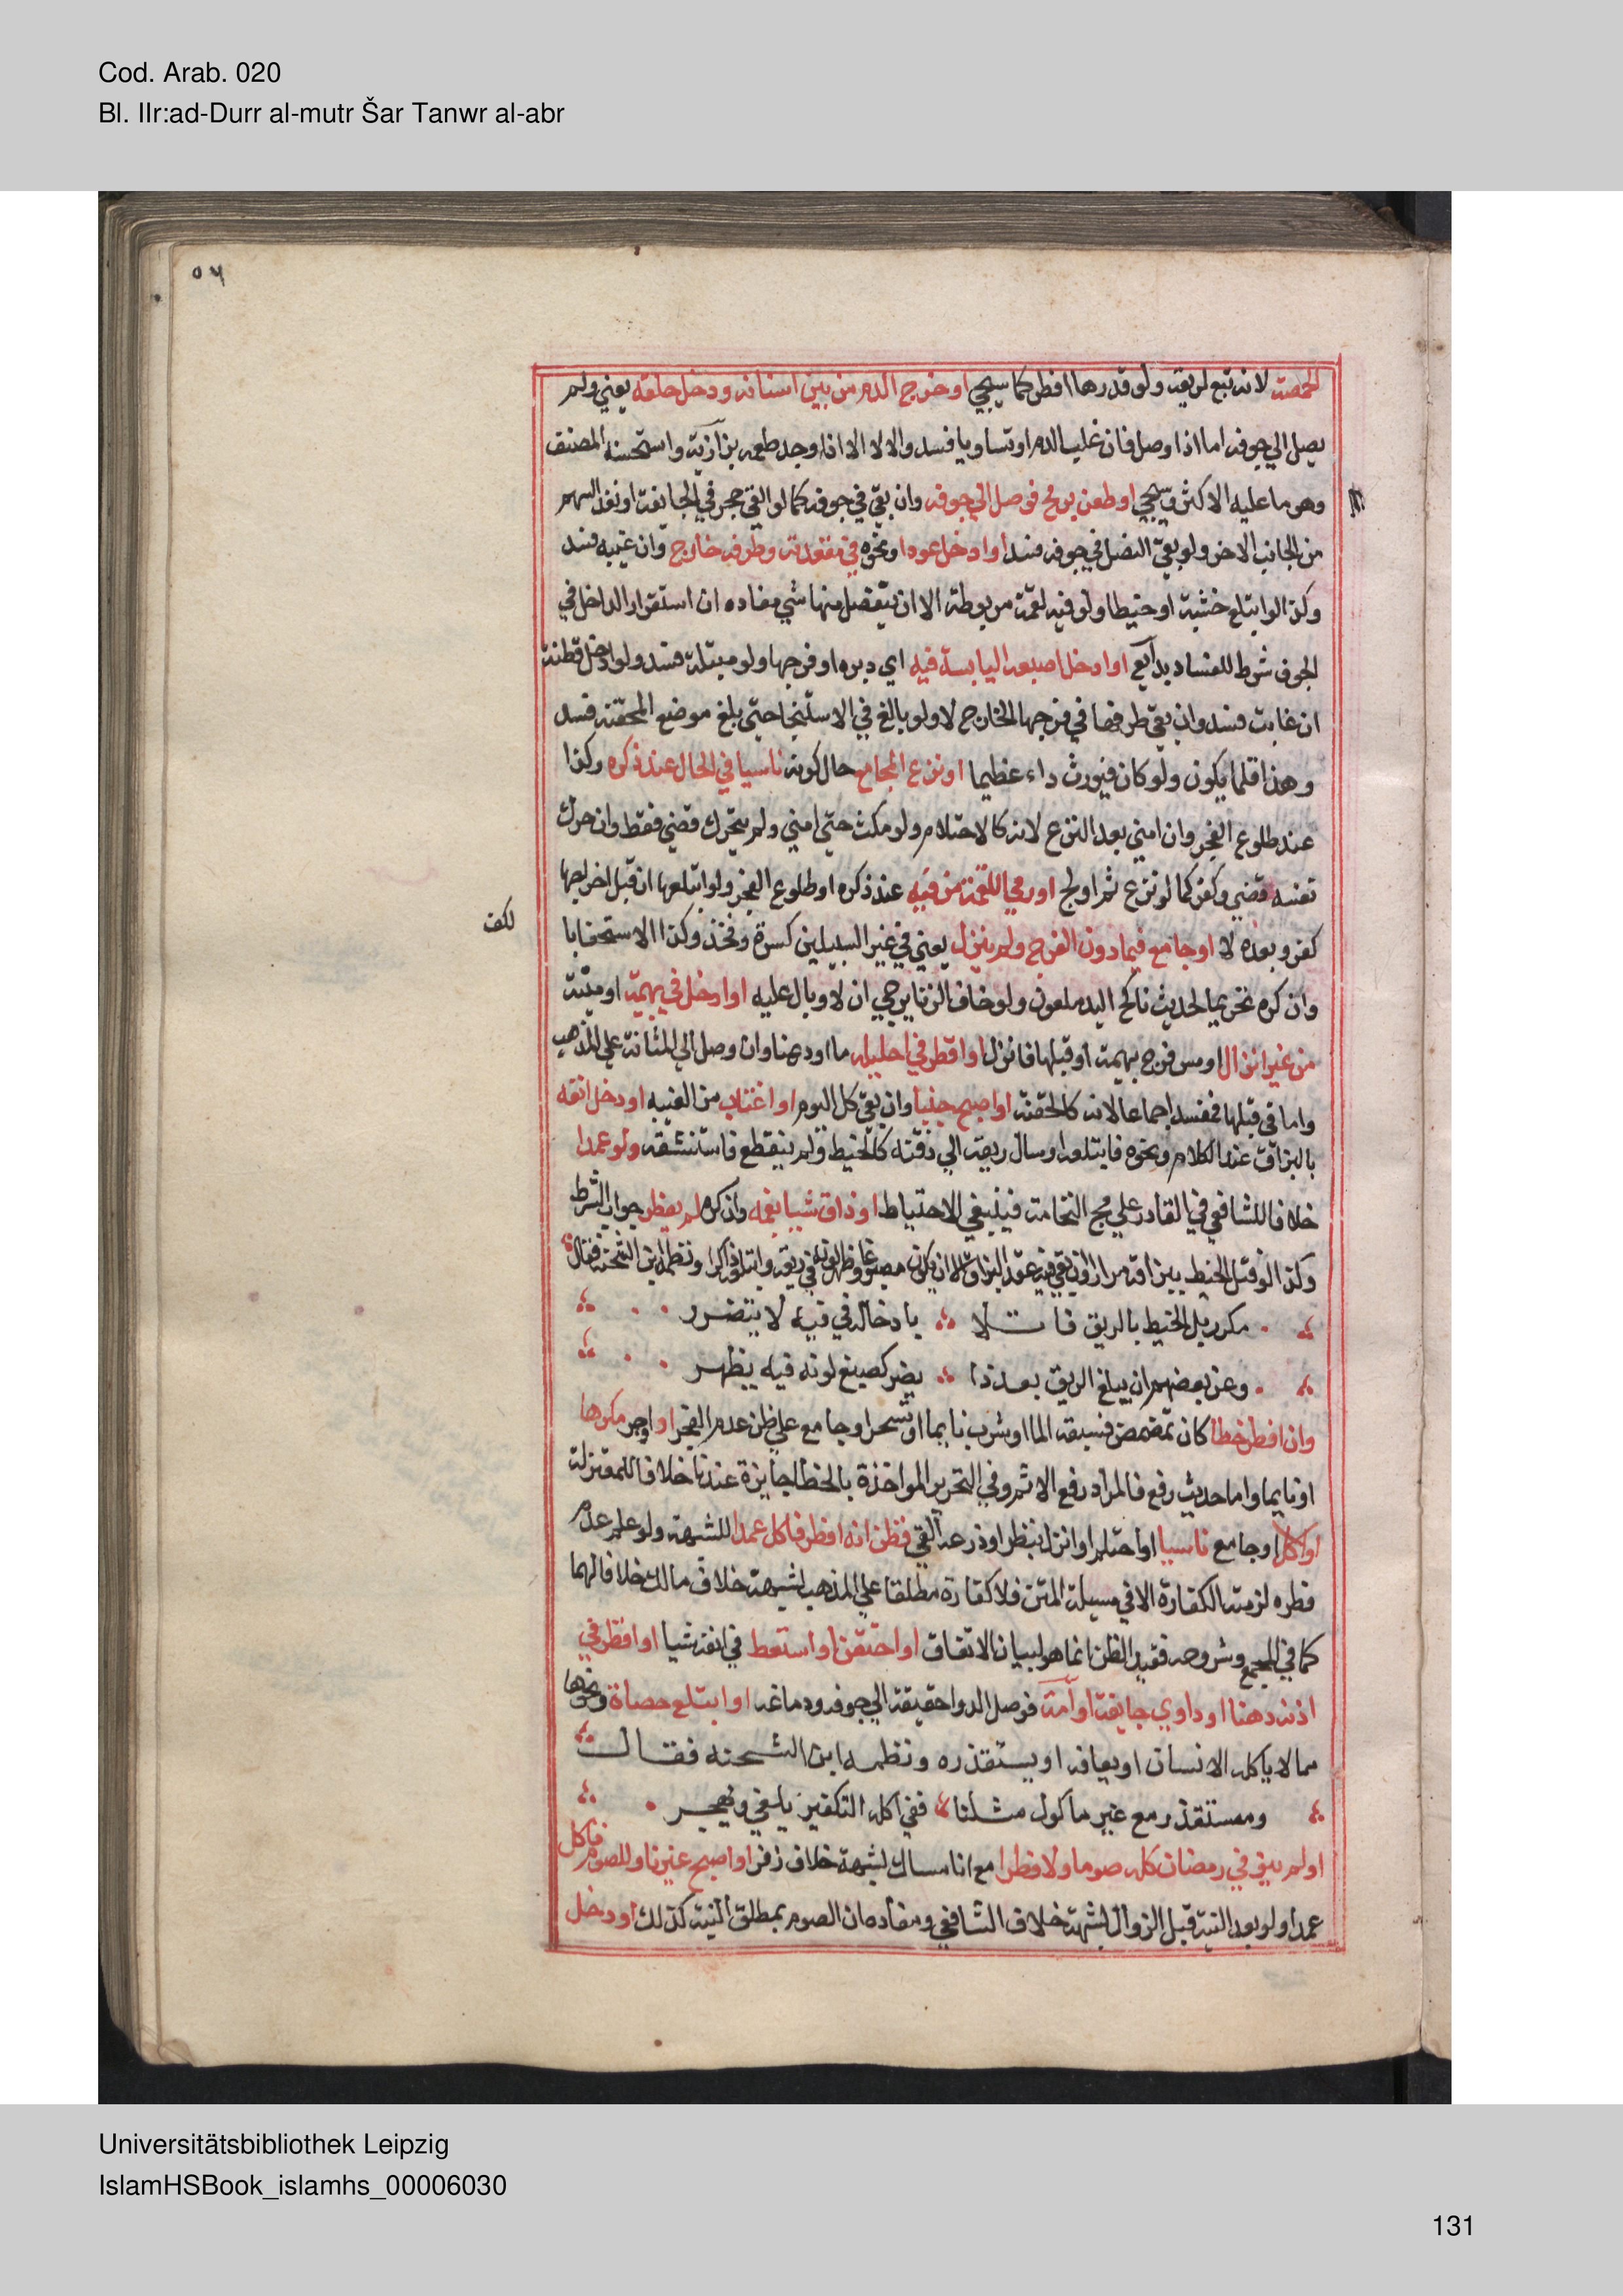 Cod. Arab. 020
Bl. IIr:ad-Durr al-mutr Šar Tanwr al-abr
٥٦
الحمصة لانه تبع لريقه ولو قدرها افطر كما سيجي او خرج الدم من بين اسنانه ودخل حلقه يعني ولم
يصل الي جوفه اما اذا وصل فان غلب الدم او تساويا فسد والا لا الا اذا وجد طعمه بزازية واستحسنه المصنف
وهو ما عليه الاكثر وسيجي او طعن برمح فوصل الي جوفه وان بقي في جوفه كما لو القي حجر في الجائفة او نفذ السهم
من الجانب الاخر ولو بقي النصل في جوفه فسد او ادخل عودا ونحوه في مقعدته وطرفه خارج وان غيبه فسد
وكذا لو ابتلع خشبة او خيطا ولو فيه لقمة مربوطة الا ان ينفصل منها شي مفاده ان استقرار الداخل في
الجوف شرط للفساد بدايع او ادخل اصبعه اليابسة فيه اي دبره او فرجها ولو مبتلة فسد ولو ادخل قطنة
ان غابت فسد وان بقي طرفها في فرجها الخارج لا ولو بالغ في الاستنجا حتي بلغ موضع المحقنة فسد
وهذا قلما يكون ولو كان فيورث داء عظيما او نزع المجامع حال كونه ناسيا في الحال عند ذكره وكذا
عند طلوع الفجر وان امني بعد النزع لانه كالاحتلام ولو مكث حتي امني ولم يتحرك قضي فقط وان حرك
نفسه قضي وكفر كما لو نزع ثم اولج او رمي اللقمة من فيه عند ذكره او طلوع الفجر ولو ابتلعها ان قبل اخراجها
كفر وبعده لا او جامع فيما دون الفرج ولم ينزل يعني في غير السبيلين كسرة وفخذ وكذا الاستمنا با
لكف
وان كره تحريما لحديث ناكح اليد ملعون ولو خاف الزنا يرجي ان لا وبال عليه او ادخل في بهيمة او ميتة
من غير انزال او مس فرج بهيمة او قبلها فانزل او اقطر في احليله ما او دهنا وان وصل الي المثانة علي المذهب
واما في قبلها فمفسد اجماعا لانه كالحقنة او اصبح جنبا وان بقي كل اليوم او اغتاب من الغيبه او دخل انفه
بالبزاق عند الكلام ونحوه فابتلعه او سال ريقه الي ذقنه كالخيط ولم ينقطع فاستنشقه ولو عمدا
خلافا للشافعي في القادر علي مج النخامة فينبغي الاحتياط او ذاق شيا بفمه وان كره لم يفطر جواب الشرط
وكذا لو فتل الخيط ببزاقه مرارا وان بقي فيه عقد البزاق الا ان يكون مصبوغا وظهر لونه في ريقه وابتلعه ذاكرا ونظمه ابن الشحنة فقال
مكرر بل الخيط بالريق فاتلا بادخاله في فيه لا يتضرر
وعن بعضهم ان يبلغ الريق بعد ذا يضر كصبغ لونه فيه يظهر
وان افطر خطا كان تمضمض فسبقه الما او شرب نايما او تسحر او جامع علي ظن عدم الفجر او اوجر مكرها
او نايما واما حديث رفع فالمراد رفع الاثم وفي التحرير المواخذة بالخطا جايزة عندنا خلافا للمعتزلة
او اكل او جامع ناسيا او احتلم او انزل بنظر او ذرعه القي فظن انه افطر فاكل عمدا للشبهة ولو علم عدم
فطره لزمته الكفارة الا في مسيلة المتن فلا كفارة مطلقا علي المذهب لشبهة خلاف مالك خلافا لهما
كما في المجمع وشروحه فقيد الظن انما هو لبيان الاتفاق او احتقن او استعط في انفه شيا او اقطر في
اذنه دهنا او داوي جايفة او آمة فوصل الدوا حقيقة الي جوفه ودماغه او ابتلع حصاة ونحوها
مما لا ياكله الانسان او يعافه او يستقذره ونظمه ابن الشحنه فقال
ومستقذر مع غير ماكول مثلنا ففي اكله التكفير يلغي ويهجر
او لم ينو في رمضان كله صوما ولا فطرا مع امساك لشبهة خلاف زفر او اصبح غير ناو للصوم فاكل
عمدا ولو بعد النية قبل الزوال لشبهة خلاف الشافعي ومفاده ان الصوم بمطلق النية كذلك او دخل
Universitätsbibliothek Leipzig
IslamHSBook_islamhs_00006030
131